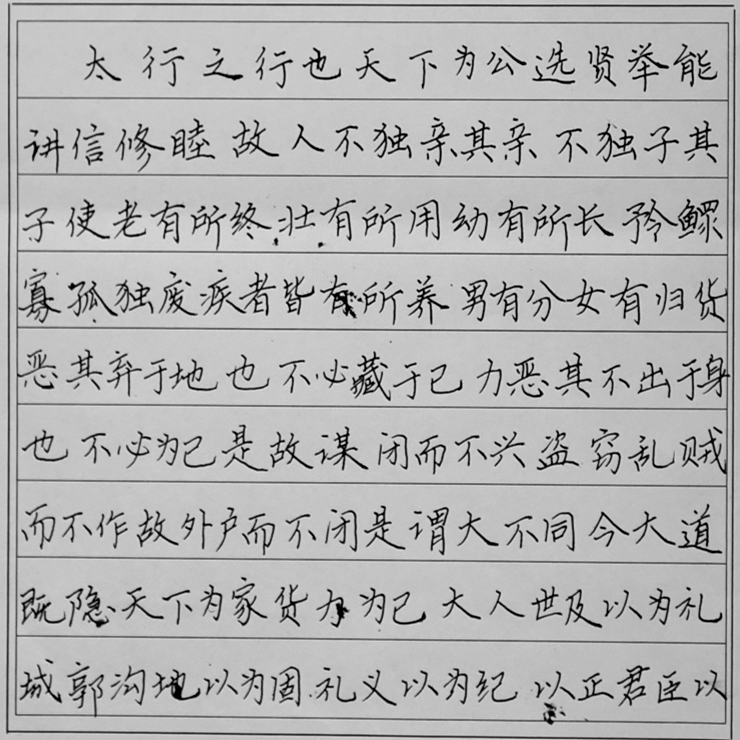 太行之行也天下为公选贤举能
讲信修睦故人不独亲其亲不独子其
子使老有所终壮有所用幼有所长矜鳏
寡孤独废疾者皆有所养男有分女有归货
恶其弃于地也不必藏于己力恶其不出于身
也不必为己是故谋闭而不兴盗窃乱贼
而不作故外户而不闭是谓大不同今大道
既隐天下为家货力为己大人世及以为礼
城郭沟地以为固礼义以为纪以正君臣以